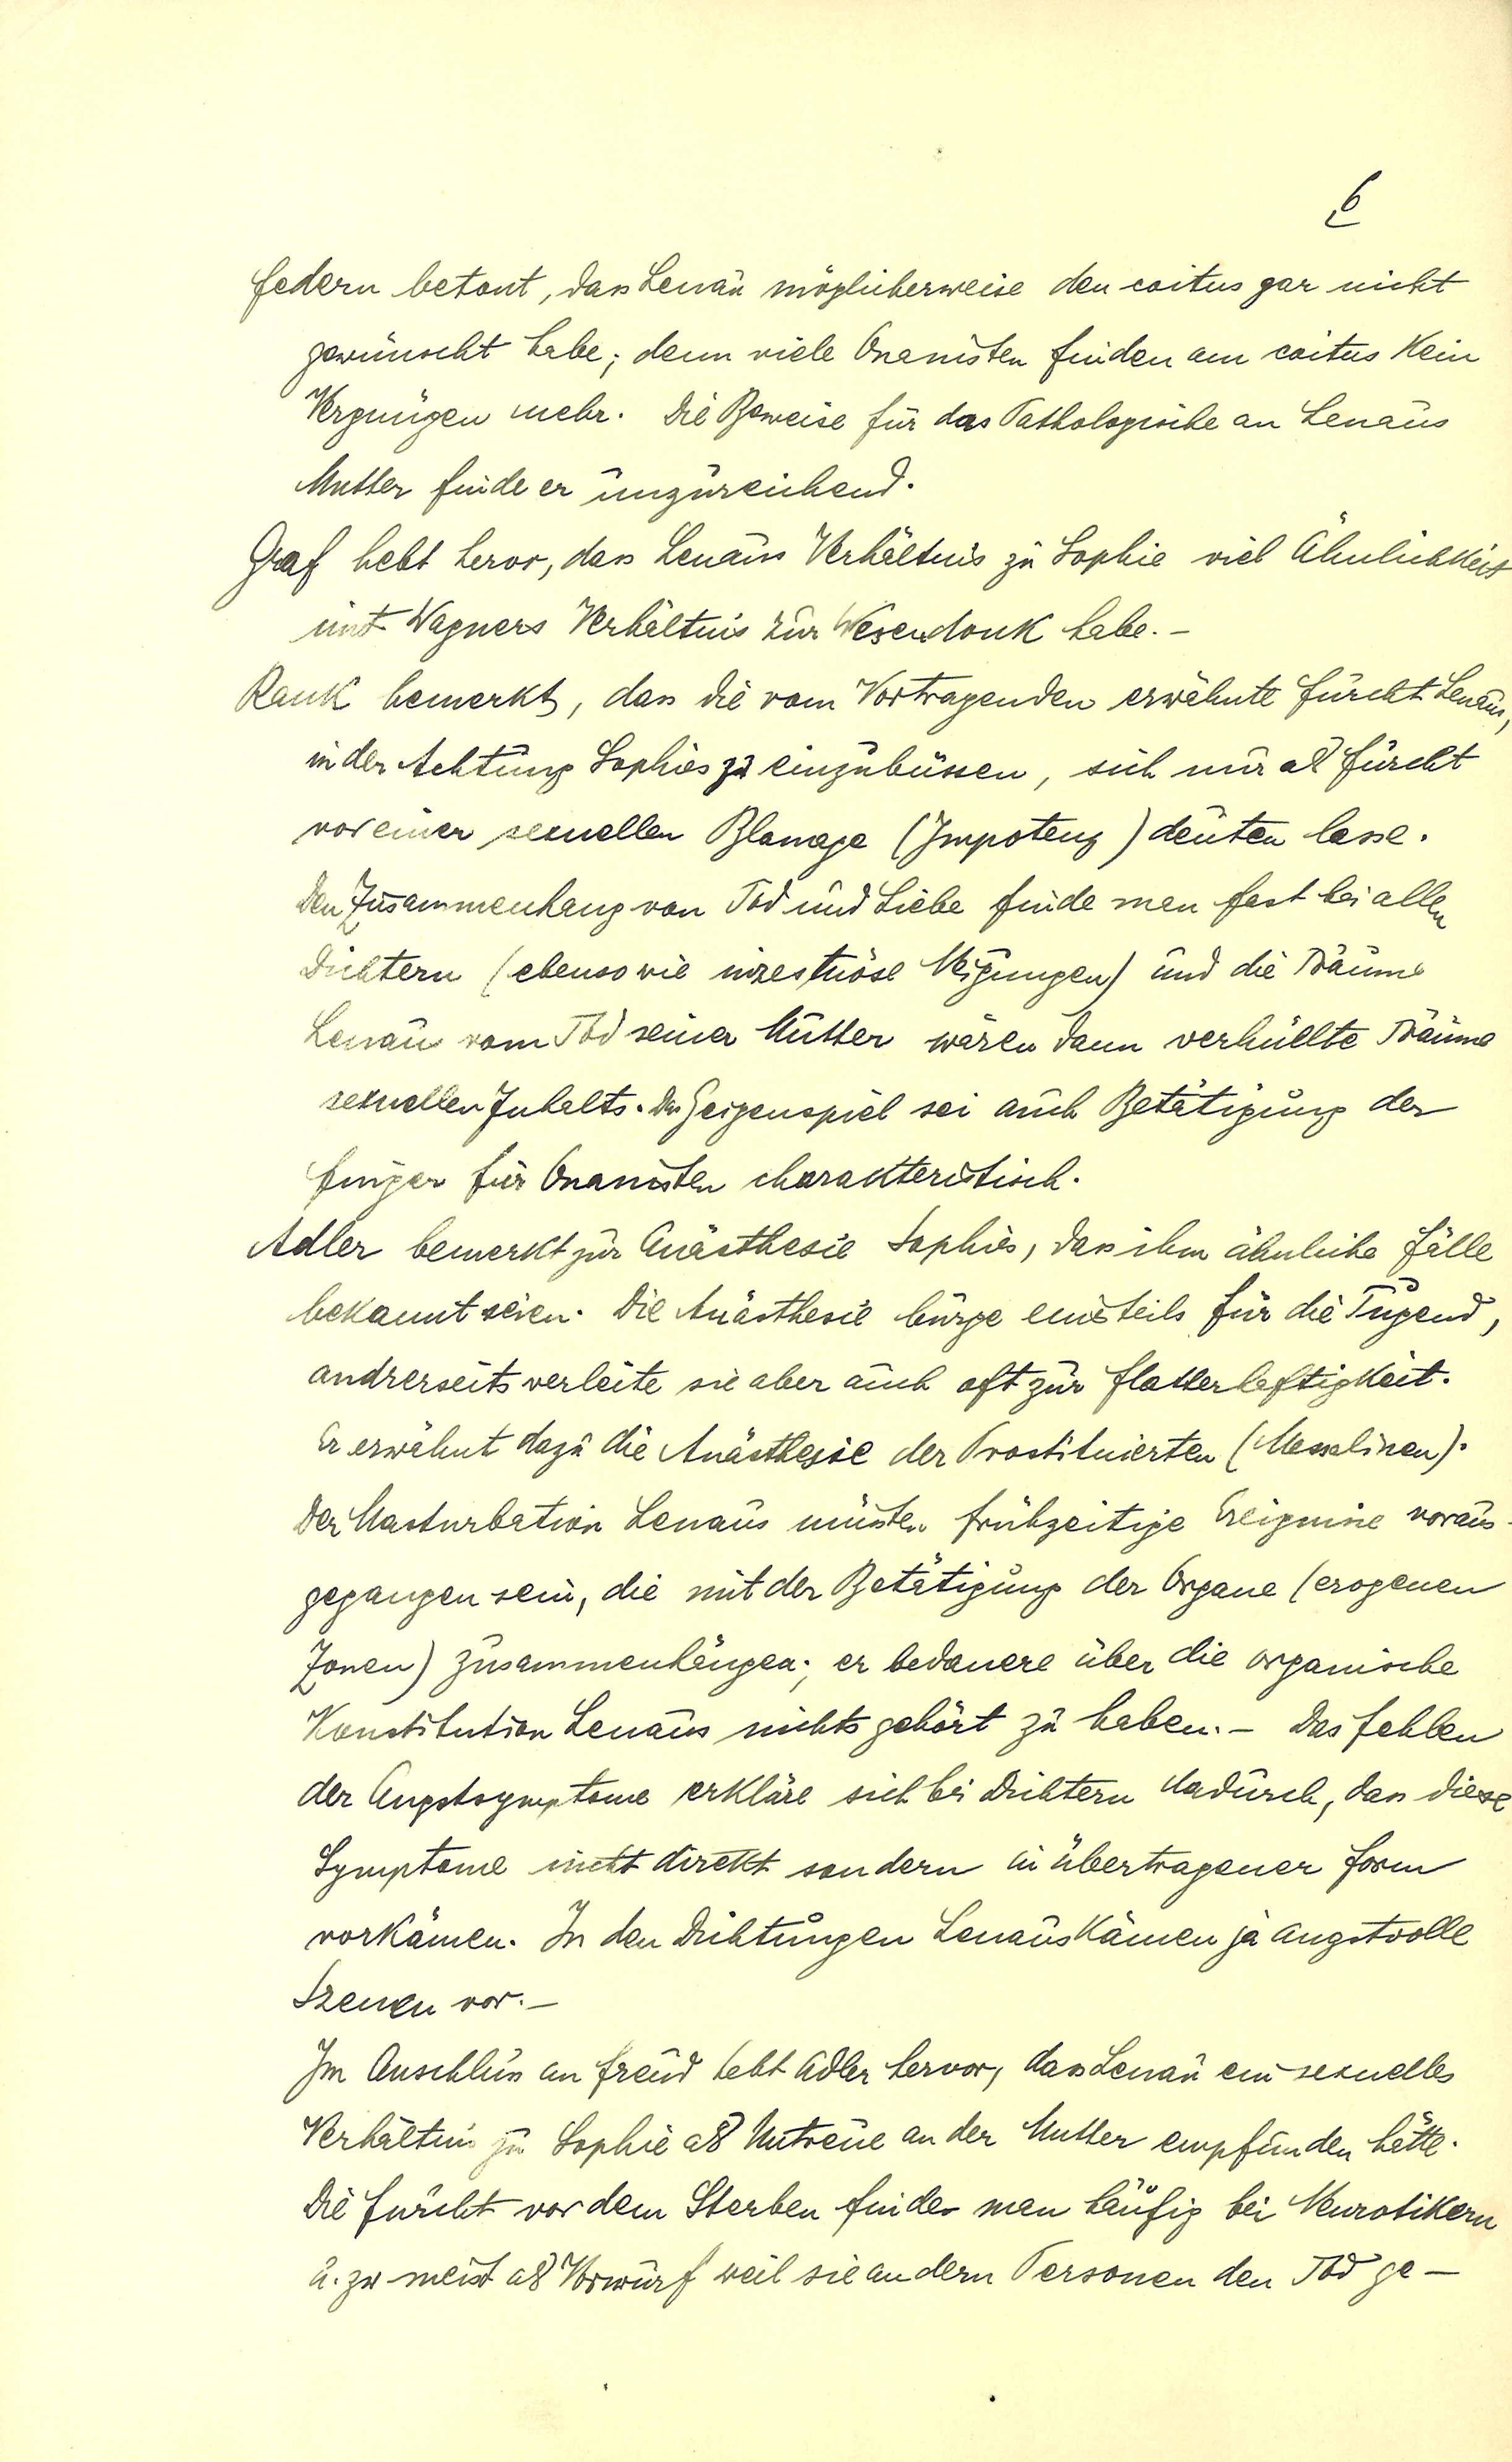 6
Federn betont, dass Lenau möglicherweise den coitus gar nicht
gewünscht habe; denn viele Onanisten finden am coitus kein
Vergnügen mehr. Die Beweise für das Pathologische an Lenaus
Mutter finde er unzureichend.
Graf hebt hervor, dass Lenaus Verhältnis zu Sophie viel Ähnlichkeit
mit Wagners Verhältnis zur Wesendonk habe. –
Rank bemerkt, dass die vom Vortragenden erwähnte Furcht Lenaus,
in der Achtung Sophies zu einzubüssen, sich nur als Furcht
vor einer sexuellen Blamage (Impotenz) deuten lasse.
Den Zusammenhang von Tod und Liebe finde man fast bei allen
Dichtern (ebenso wie inzestuöse Neigungen) und die Träume
Lenau vom Tod seiner Mutter wären dann verhüllte Träume
sexuellen Inhalts. Das Geigenspiel sei auch Betätigung der
Finger für Onanisten charakteristisch.
Adler bemerkt zur Anästhesie Sophies, dass ihm ähnliche Fälle
bekannt seien. Die Anästhesie bürge einesteils für die Tugend,
andrerseits verleite sie aber auch oft zur Flatterhaftigkeit.
Er erwähnt dazu die Anästhesie der Prostituierten (Messalinen).
Der Masturbation Lenaus müssten frühzeitige Ereignisse voraus-
gegangen sein, die mit der Betätigung der Organe (erogenen
Zonen) zusammenhängen; er bedauere über die organische
Konstitution Lenaus nichts gehört zu haben. – Das Fehlen
der Angstsymptome erkläre sich bei Dichtern dadurch, dass diese
Symptome nicht direkt sondern in übertragener Form
vorkämen. In den Dichtungen Lenaus kämen ja angstvolle
Szenen vor. –
Im Anschluss an Freud hebt Adler hervor, dass Lenau ein sexuelles
Verhältnis zu Sophie als Untreue an der Mutter empfunden hätte.
Die Furcht vor dem Sterben finde man häufig bei Neurotikern
u. zw meist als Vorwurf weil sie andern Personen den Tod ge–